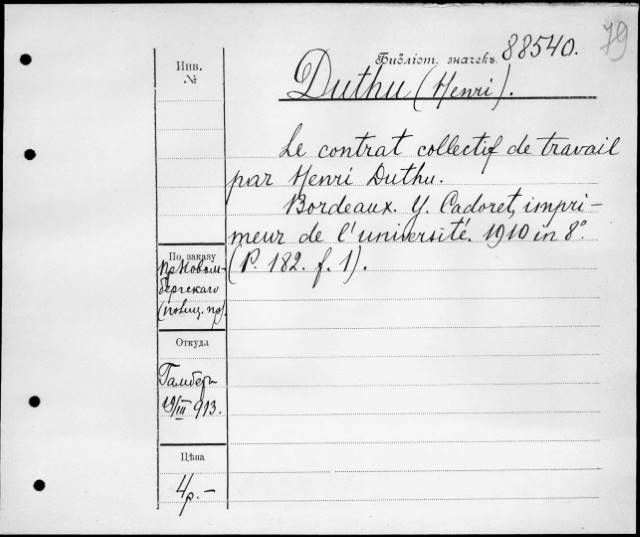 79
Библіот. значекъ 88540.
Инв.
№
Duthu (Henri).
Le contrat collectif de travail
par Henri Duthu.
Bordeaux. Y. Cadoret, impri-
meur de l'université. 1910 in 8°.
(P. 182. f. 1).
По заказу
Пр Новом-
бергскаго
(полиц. пр).
Откуда
Гамбер
19/III 913.
Цѣна
4р.-